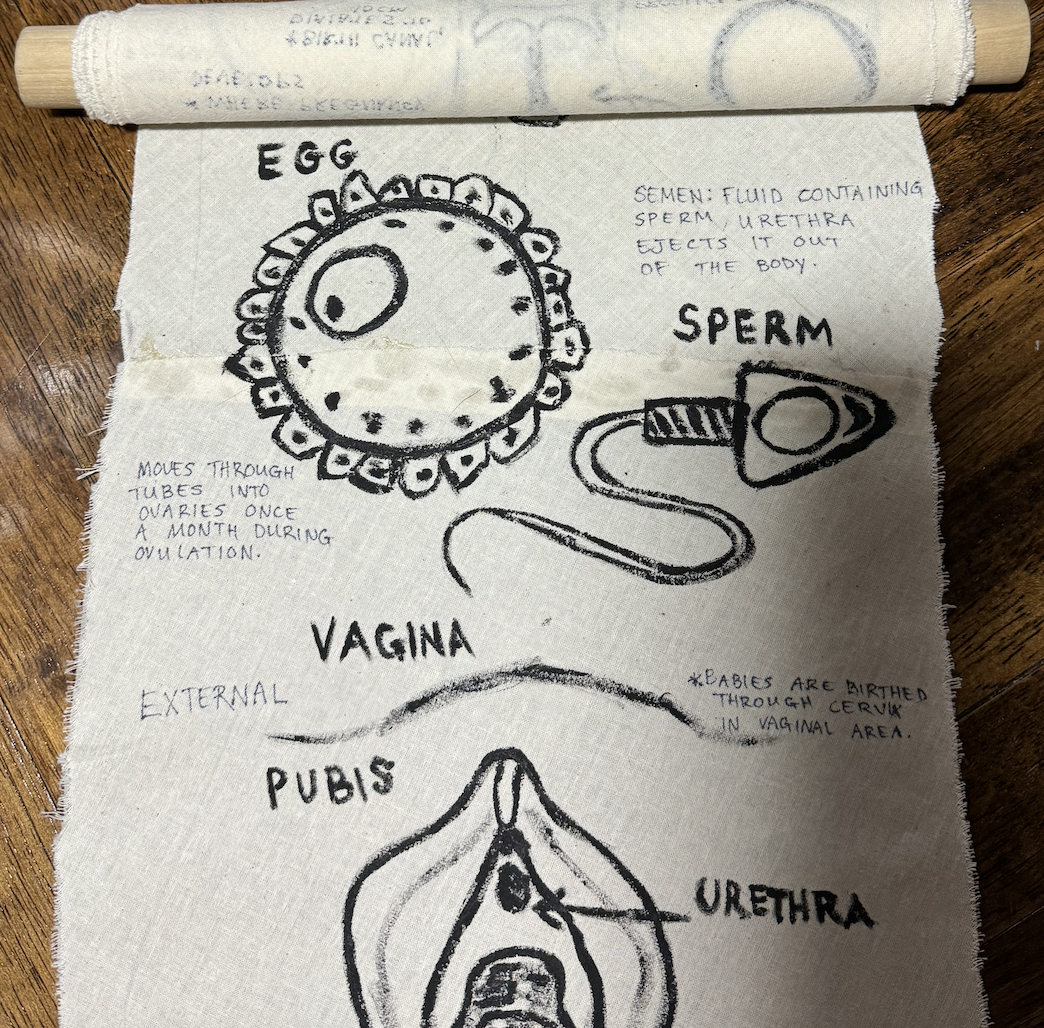 EGG
SEMEN: FLUID CONTAINING
SPERM, URETHRA
EJECTS IT OUT
OF THE BODY.
SPERM
MOVES THROUGH
TUBES INTO
OVARIES ONCE
A MONTH DURING
OVULATION.
VAGINA
EXTERNAL
*BABIES ARE BIRTHED
THROUGH CERVIX
IN VAGINAL AREA.
PUBIS
URETHRA